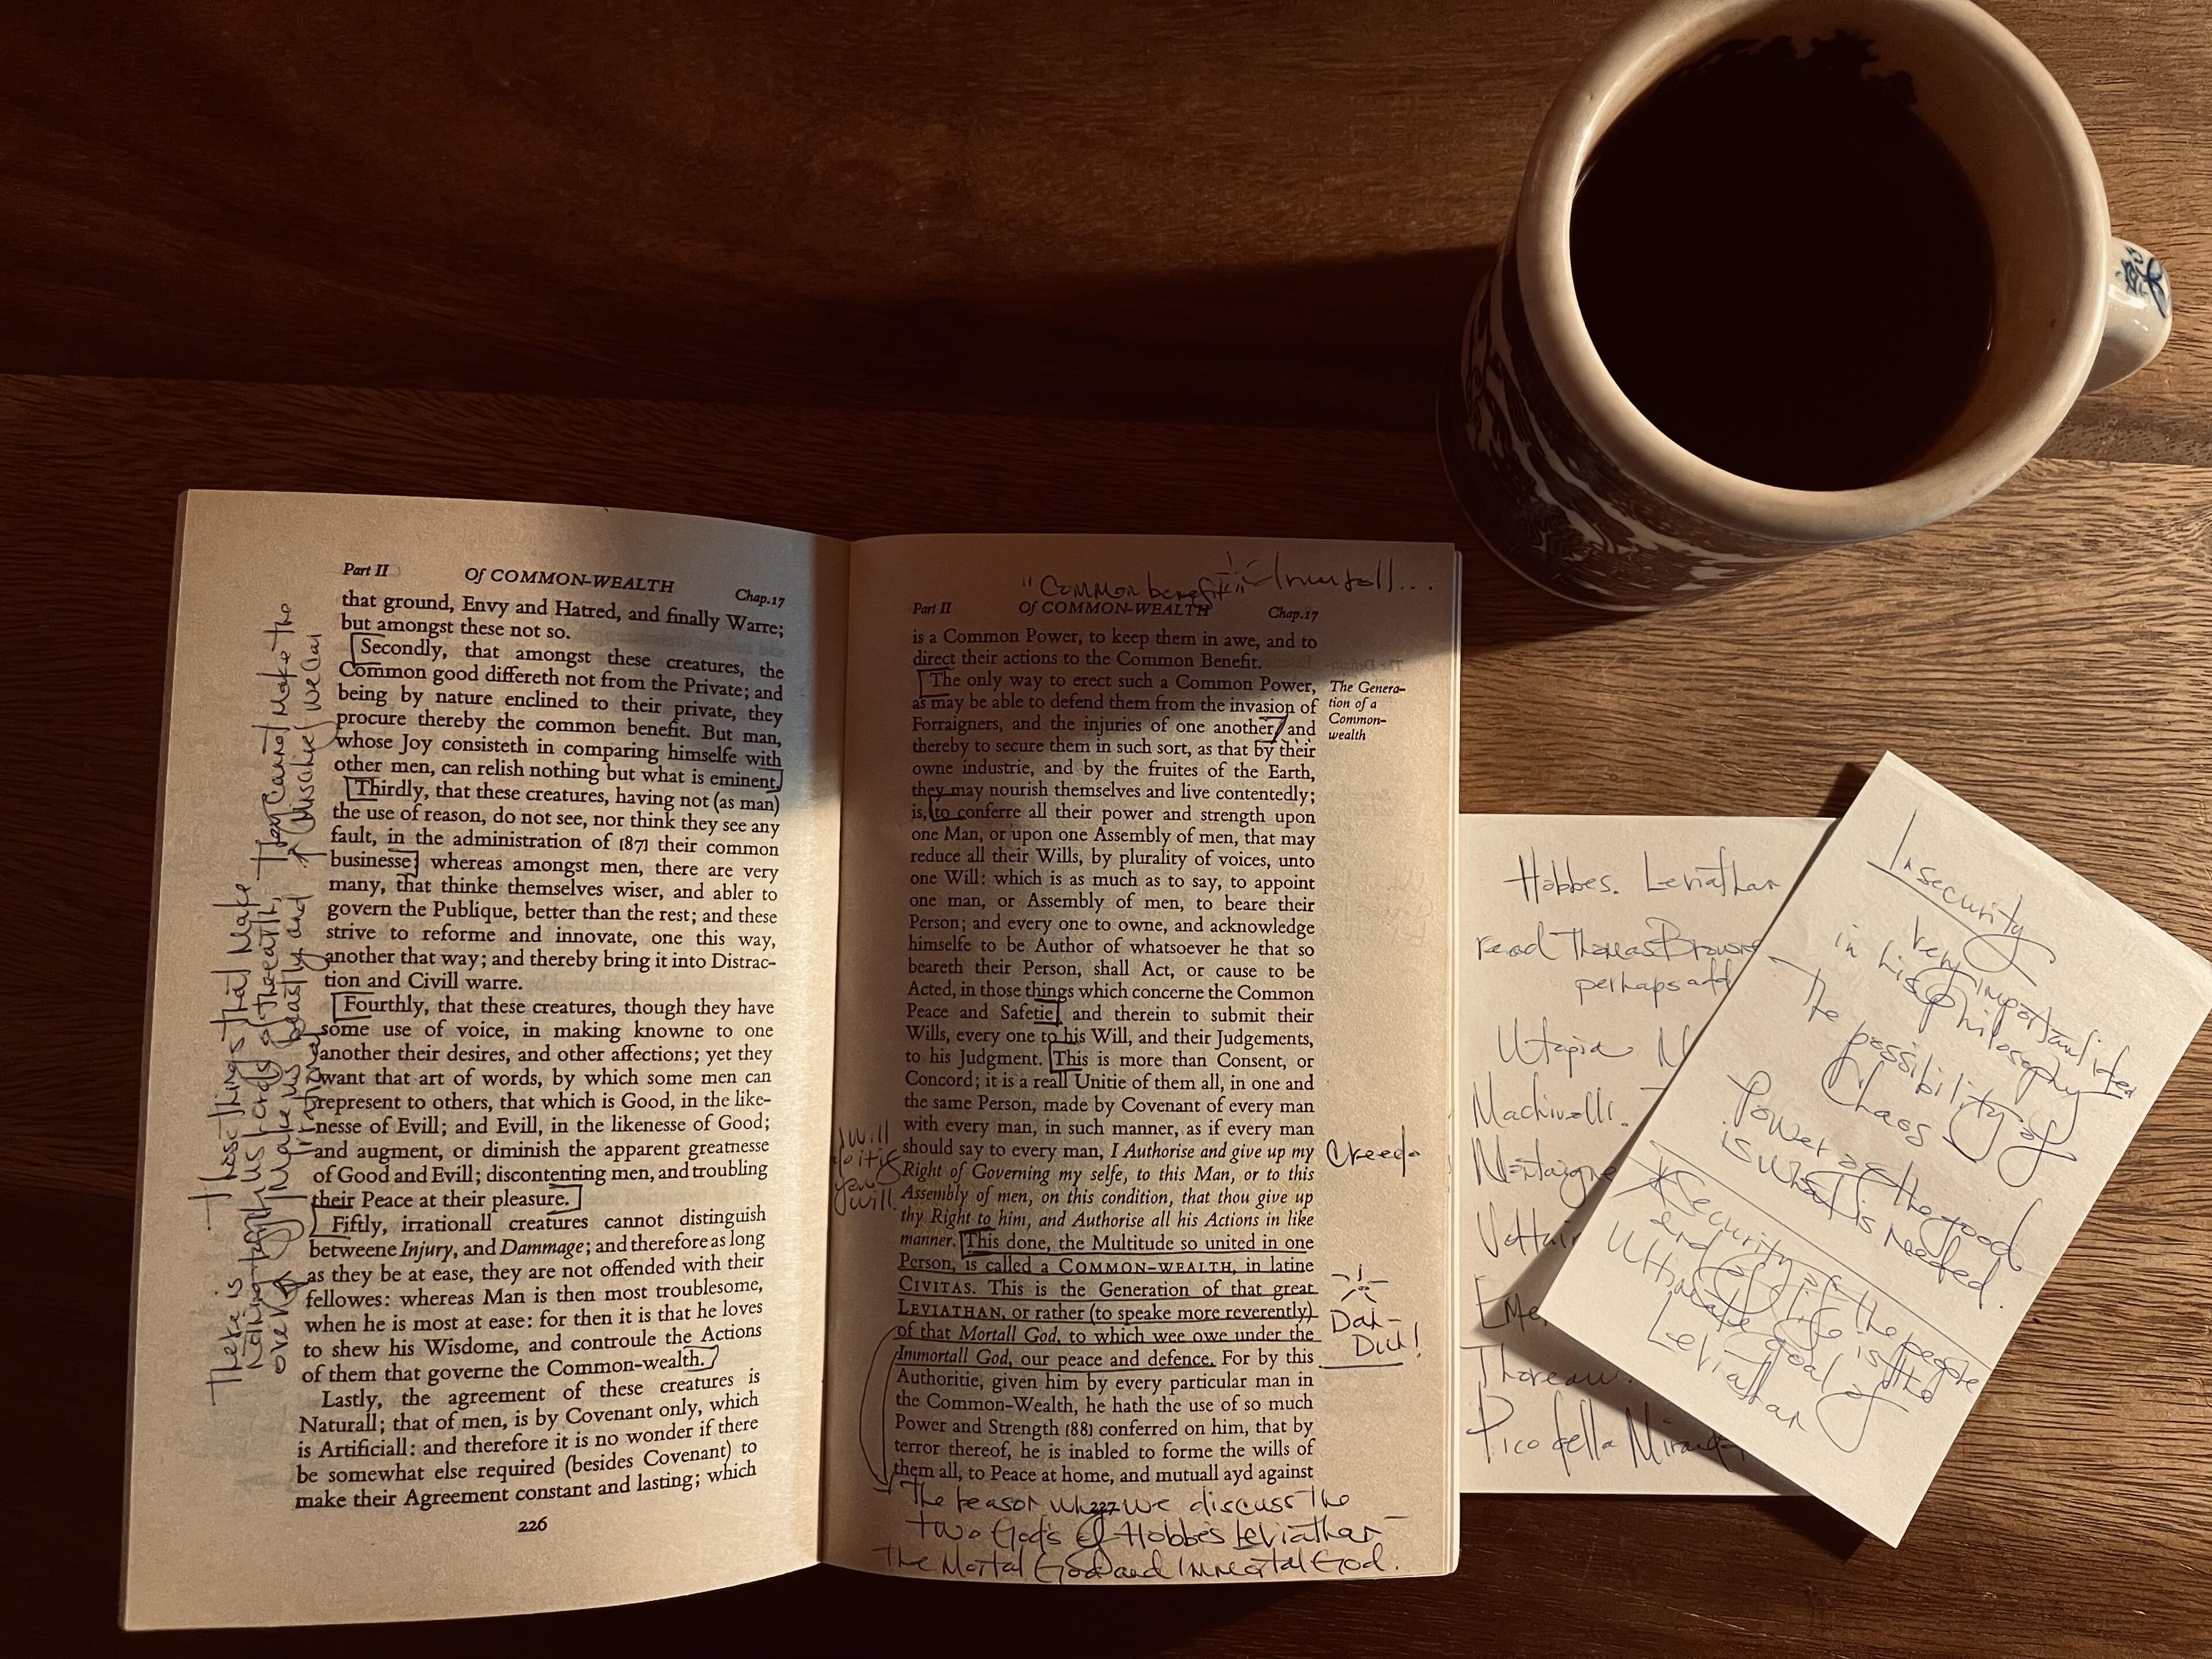 Part II Of COMMON-WEALTH Chap.17
that ground, Envy and Hatred, and finally Warre;
but amongst these not so.
Secondly, that amongst these creatures, the
Common good differeth not from the Private; and
being by nature enclined to their private, they
procure thereby the common benefit. But man,
whose Joy consisteth in comparing himselfe with
other men, can relish nothing but what is eminent.
Thirdly, that these creatures, having not (as man)
the use of reason, do not see, nor think they see any
fault, in the administration of [87] their common
businesse; whereas amongst men, there are very
many, that thinke themselves wiser, and abler to
govern the Publique, better than the rest; and these
strive to reforme and innovate, one this way,
another that way; and thereby bring it into Distrac-
tion and Civill warre.
Fourthly, that these creatures, though they have
some use of voice, in making knowne to one
another their desires, and other affections; yet they
want that art of words, by which some men can
represent to others, that which is Good, in the like-
nesse of Evill; and Evill, in the likenesse of Good;
and augment, or diminish the apparent greatnesse
of Good and Evill; discontenting men, and troubling
their Peace at their pleasure.
Fiftly, irrationall creatures cannot distinguish
betweene Injury, and Dammage; and therefore as long
as they be at ease, they are not offended with their
fellowes: whereas Man is then most troublesome,
when he is most at ease: for then it is that he loves
to shew his Wisdome, and controule the Actions
of them that governe the Common-wealth.
Lastly, the agreement of these creatures is
Naturall; that of men, is by Covenant only, which
is Artificiall: and therefore it is no wonder if there
be somewhat else required (besides Covenant) to
make their Agreement constant and lasting; which
226
There is
Those things that Make
They Cannot Make the
"Common benefit"
Part II Of COMMON-WEALTH Chap.17
is a Common Power, to keep them in awe, and to
direct their actions to the Common Benefit.
The only way to erect such a Common Power,
as may be able to defend them from the invasion of
Forraigners, and the injuries of one another, and
thereby to secure them in such sort, as that by their
owne industrie, and by the fruites of the Earth,
they may nourish themselves and live contentedly;
is, to conferre all their power and strength upon
one Man, or upon one Assembly of men, that may
reduce all their Wills, by plurality of voices, unto
one Will: which is as much as to say, to appoint
one man, or Assembly of men, to beare their
Person; and every one to owne, and acknowledge
himselfe to be Author of whatsoever he that so
beareth their Person, shall Act, or cause to be
Acted, in those things which concerne the Common
Peace and Safetie; and therein to submit their
Wills, every one to his Will, and their Judgements,
to his Judgment. This is more than Consent, or
Concord; it is a reall Unitie of them all, in one and
the same Person, made by Covenant of every man
with every man, in such manner, as if every man
should say to every man, I Authorise and give up my
Right of Governing my selfe, to this Man, or to this
Assembly of men, on this condition, that thou give up
thy Right to him, and Authorise all his Actions in like
manner. This done, the Multitude so united in one
Person, is called a COMMON-WEALTH, in latine
CIVITAS. This is the Generation of that great
LEVIATHAN, or rather (to speake more reverently)
of that Mortall God, to which wee owe under the
Immortall God, our peace and defence. For by this
Authoritie, given him by every particular man in
the Common-Wealth, he hath the use of so much
Power and Strength [88] conferred on him, that by
terror thereof, he is inabled to forme the wills of
them all, to Peace at home, and mutuall ayd against
227
The Genera-
tion of a
Common-
wealth
Creedo
I will
do it if
you
will
The reason why we discuss the
two Gods of Hobbes Leviathan -
The Mortal God and Immortal God.
Hobbes. Leviathan
read Thomas Browne
perhaps add
Utopia
Machivelli.
Montaigne
Thoreau.
Pico della
Insecurity
very important idea
in his philosophy
The possibility of
Chaos -
Power of the good
is what is needed.
Security of the people
end of life is the
Ultimate goal of
Leviathan